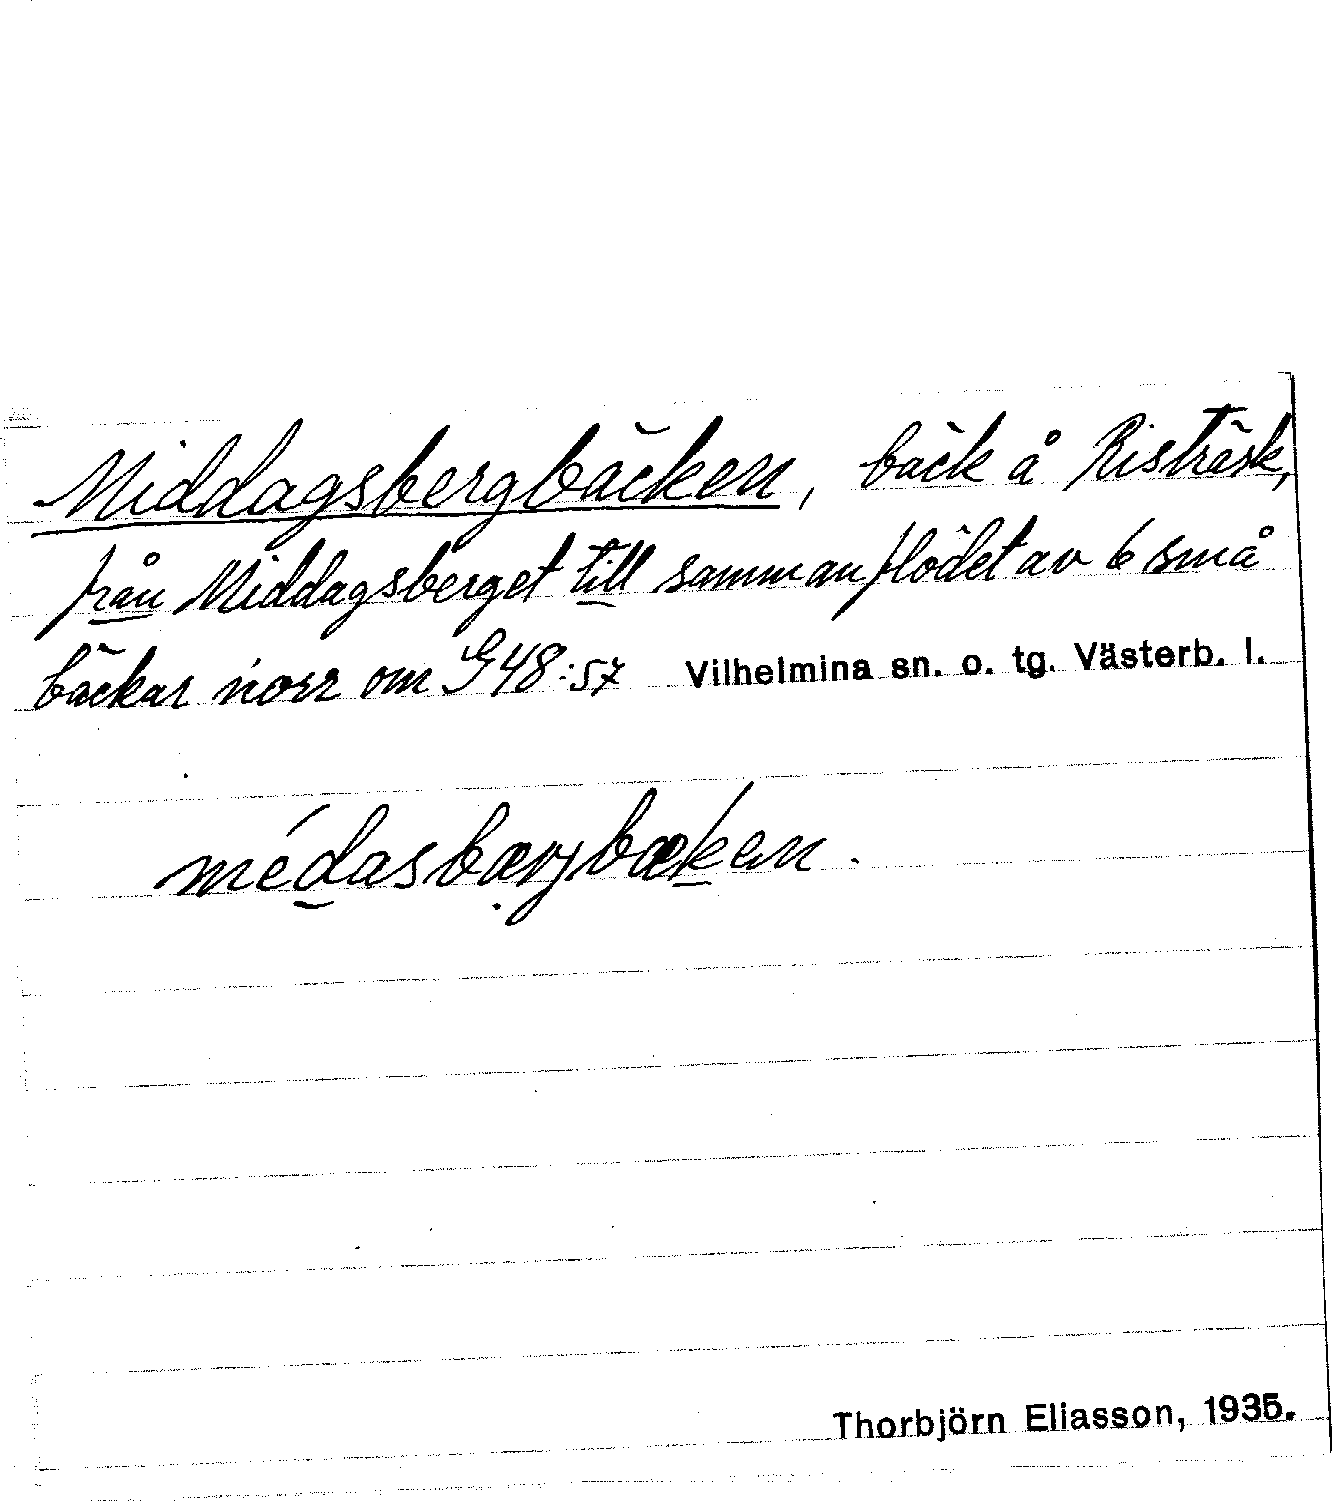 Middagsbergbäcken, bäck å Risträsk,
från Middagsberget till sammanflödet av 6 små
bäckar norr om G48:57 Vilhelmina sn. o. tg. Västerb. l.
médasbærjbæken.
Thorbjörn Eliasson, 1935.